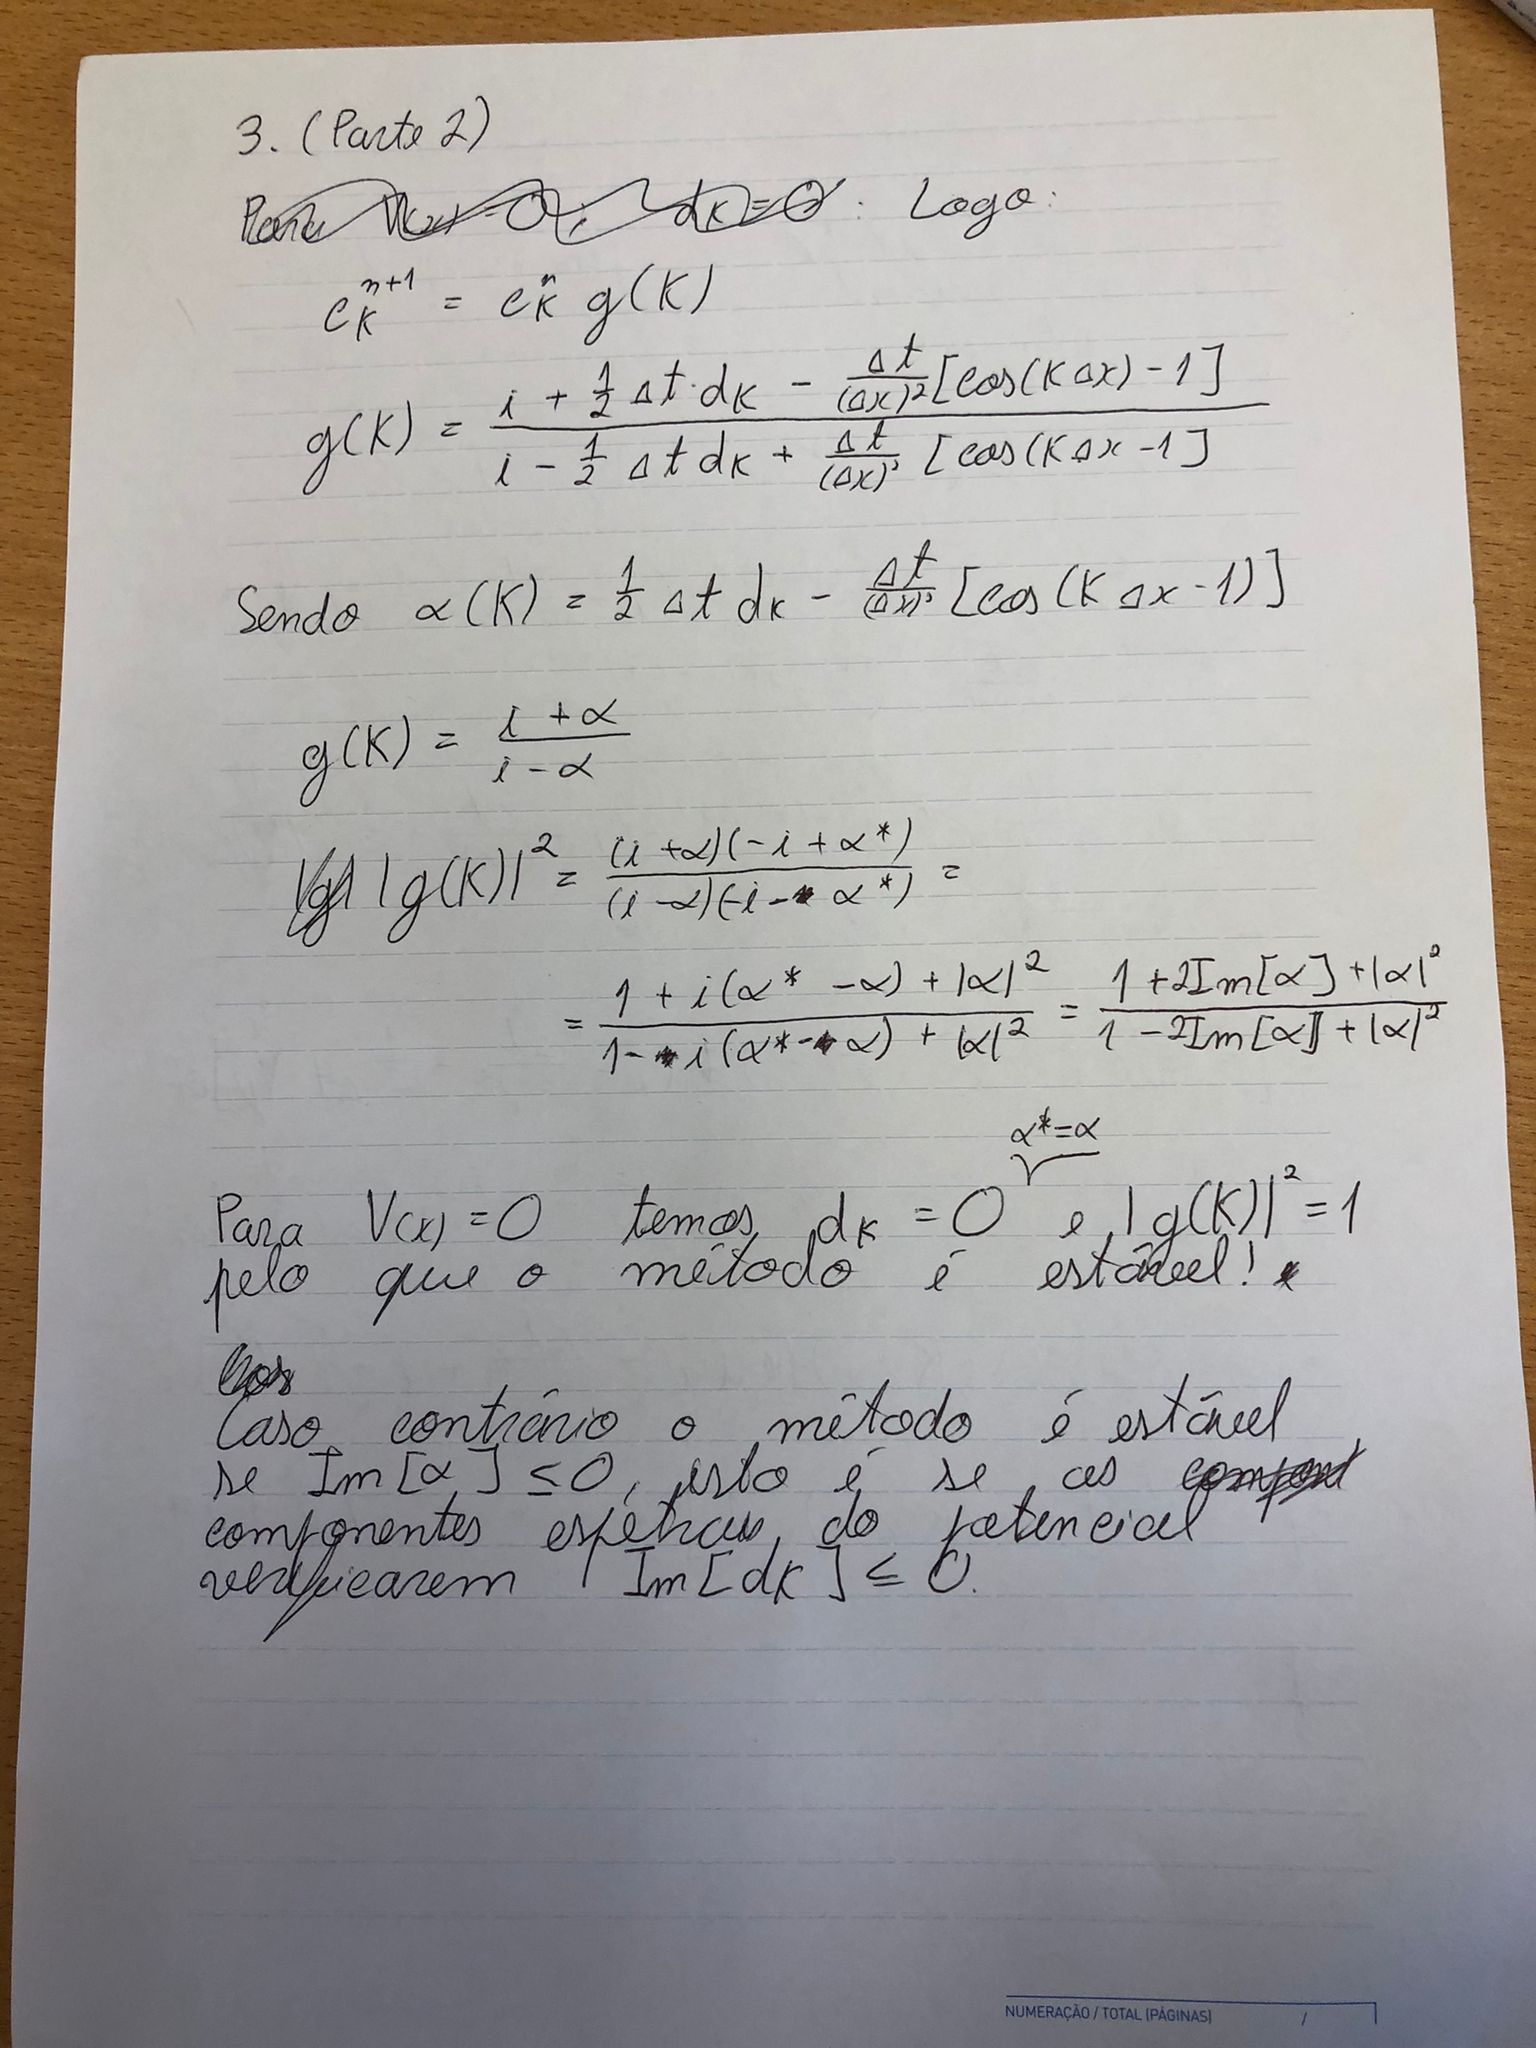 3. (Parte 2)
Para V(x) = 0, dK = 0 : Logo:
c_K^{n+1} = c_K^n g(K)
g(K) = \frac{i + \frac{1}{2} Δt·dK - \frac{Δt}{(Δx)^2}[cos(KΔx) - 1]}{i - \frac{1}{2} Δt dK + \frac{Δt}{(Δx)^2}[cos(KΔx - 1]}
Sendo α(K) = \frac{1}{2} Δt dK - \frac{Δt}{(Δx)^2}[cos(KΔx - 1)]
g(K) = \frac{i + α}{i - α}
|g(K)|^2 = \frac{(i + α)(-i + α*)}{(i - α)(-i - α*)} =
= \frac{1 + i(α* - α) + |α|^2}{1 - i(α* - α) + |α|^2} = \frac{1 + 2Im[α] + |α|^2}{1 - 2Im[α] + |α|^2}
α* = α
Para V(x) = 0 temos dK = 0 e |g(K)|^2 = 1
pelo que o método é estável!
Caso contrário o método é estável
se Im[α] ≤ 0, isto é se as
componentes espetrais do potencial
verificarem Im[dK] ≤ 0.
NUMERAÇÃO / TOTAL (PÁGINAS) /